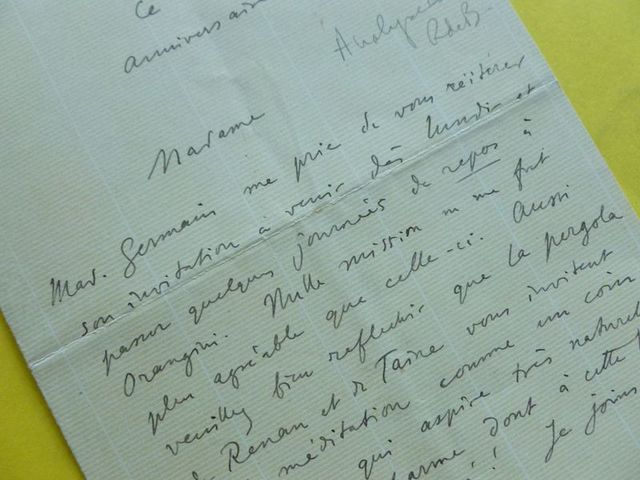 Ce
anniversaire
Madame
Mad. Germain me prie de vous réitérer
son invitation à venir dès lundi et
passer quelques journées de repos à
Orangini. Nulle mission ne me fut
plus agréable que celle-ci. Aussi
veuillez bien réfléchir que la pergola
de Renan et de Taine vous invitent
méditation comme un coin
qui aspire très naturel
charme dont à cette
! Je joins